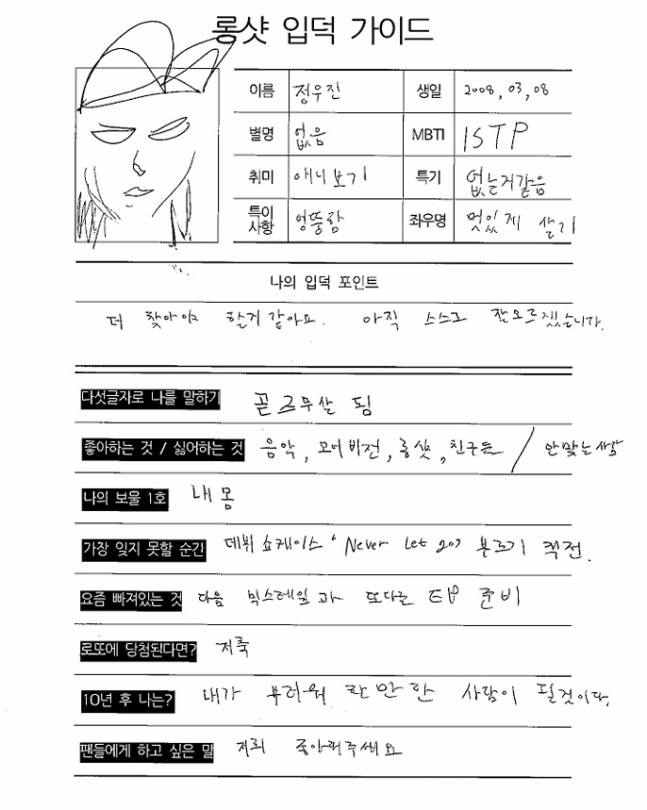 롱샷 입덕 가이드
이름 정우진 생일 2008, 03, 08
별명 없음 MBTI ISTP
취미 애니보기 특기 없는거같음
특이사항 엉뚱함 좌우명 멋있게 살기
나의 입덕 포인트
더 찾아야 할거 같아요. 아직 스스로 잘모르겠습니다.
다섯글자로 나를 말하기 곧 20살 됨
좋아하는 것 / 싫어하는 것 음악, 모어비전, 롱샷, 친구들 / 안맞는사람
나의 보물 1호 내 몸
가장 잊지 못할 순간 데뷔 쇼케이스 'Never Let go' 부르기 직전.
요즘 빠져있는 것 다음 믹스테잎 과 또다른 EP 준비
로또에 당첨된다면? 저축
10년 후 나는? 내가 부러워 할만한 사람이 될것이다.
팬들에게 하고 싶은 말 저희 좋아해주세요